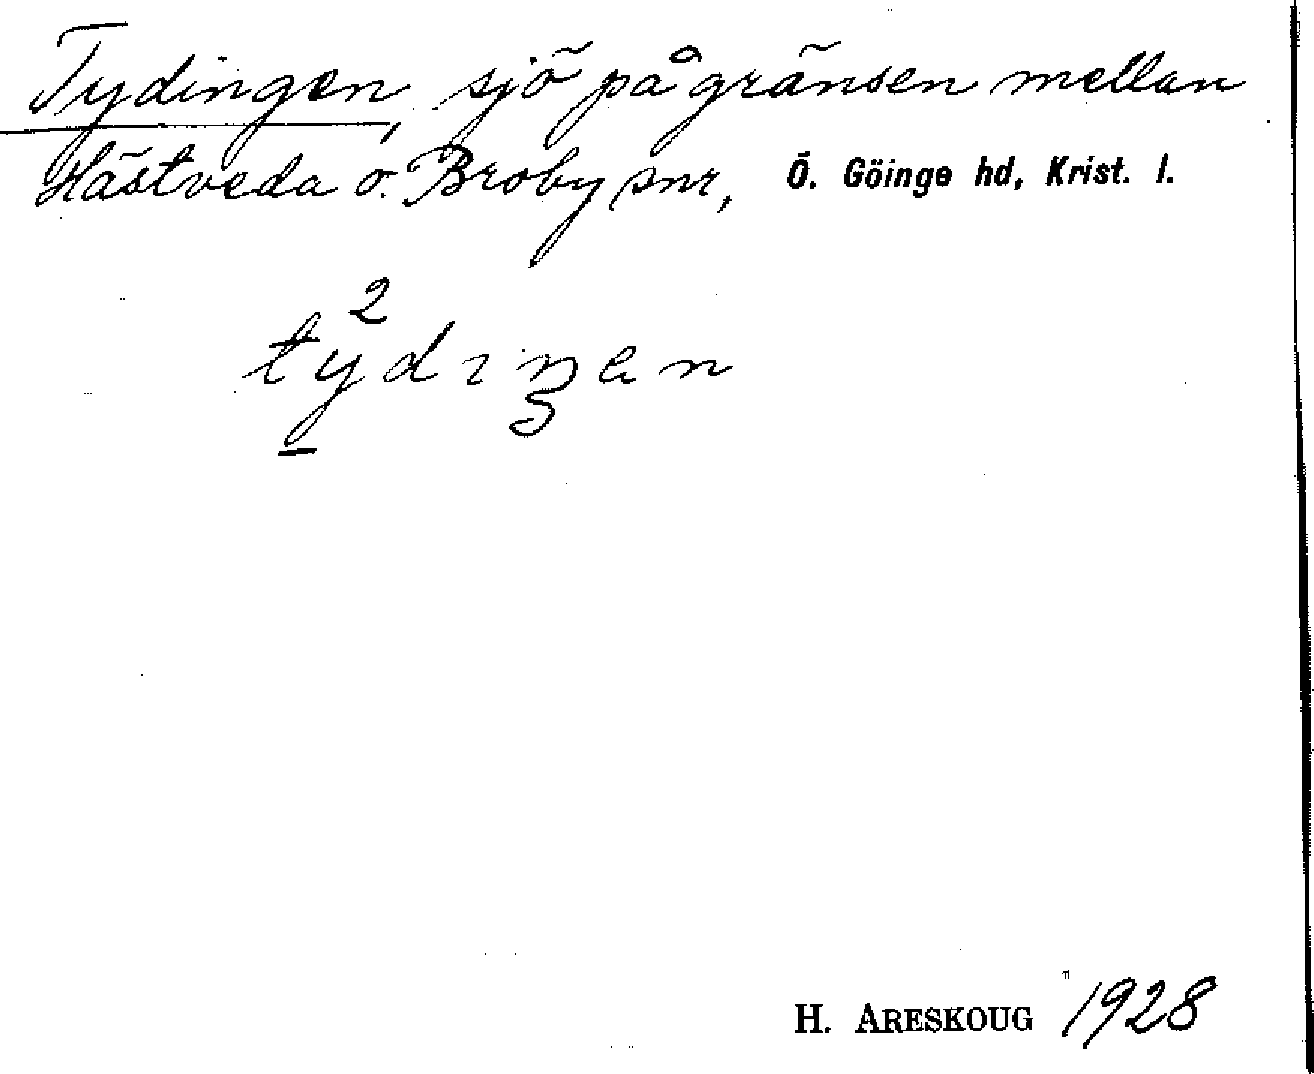 Tydingen, sjö på gränsen mellan
Hästveda o. Broby snr, Ö. Göinge hd, Krist. l.
H. ARESKOUG 1928